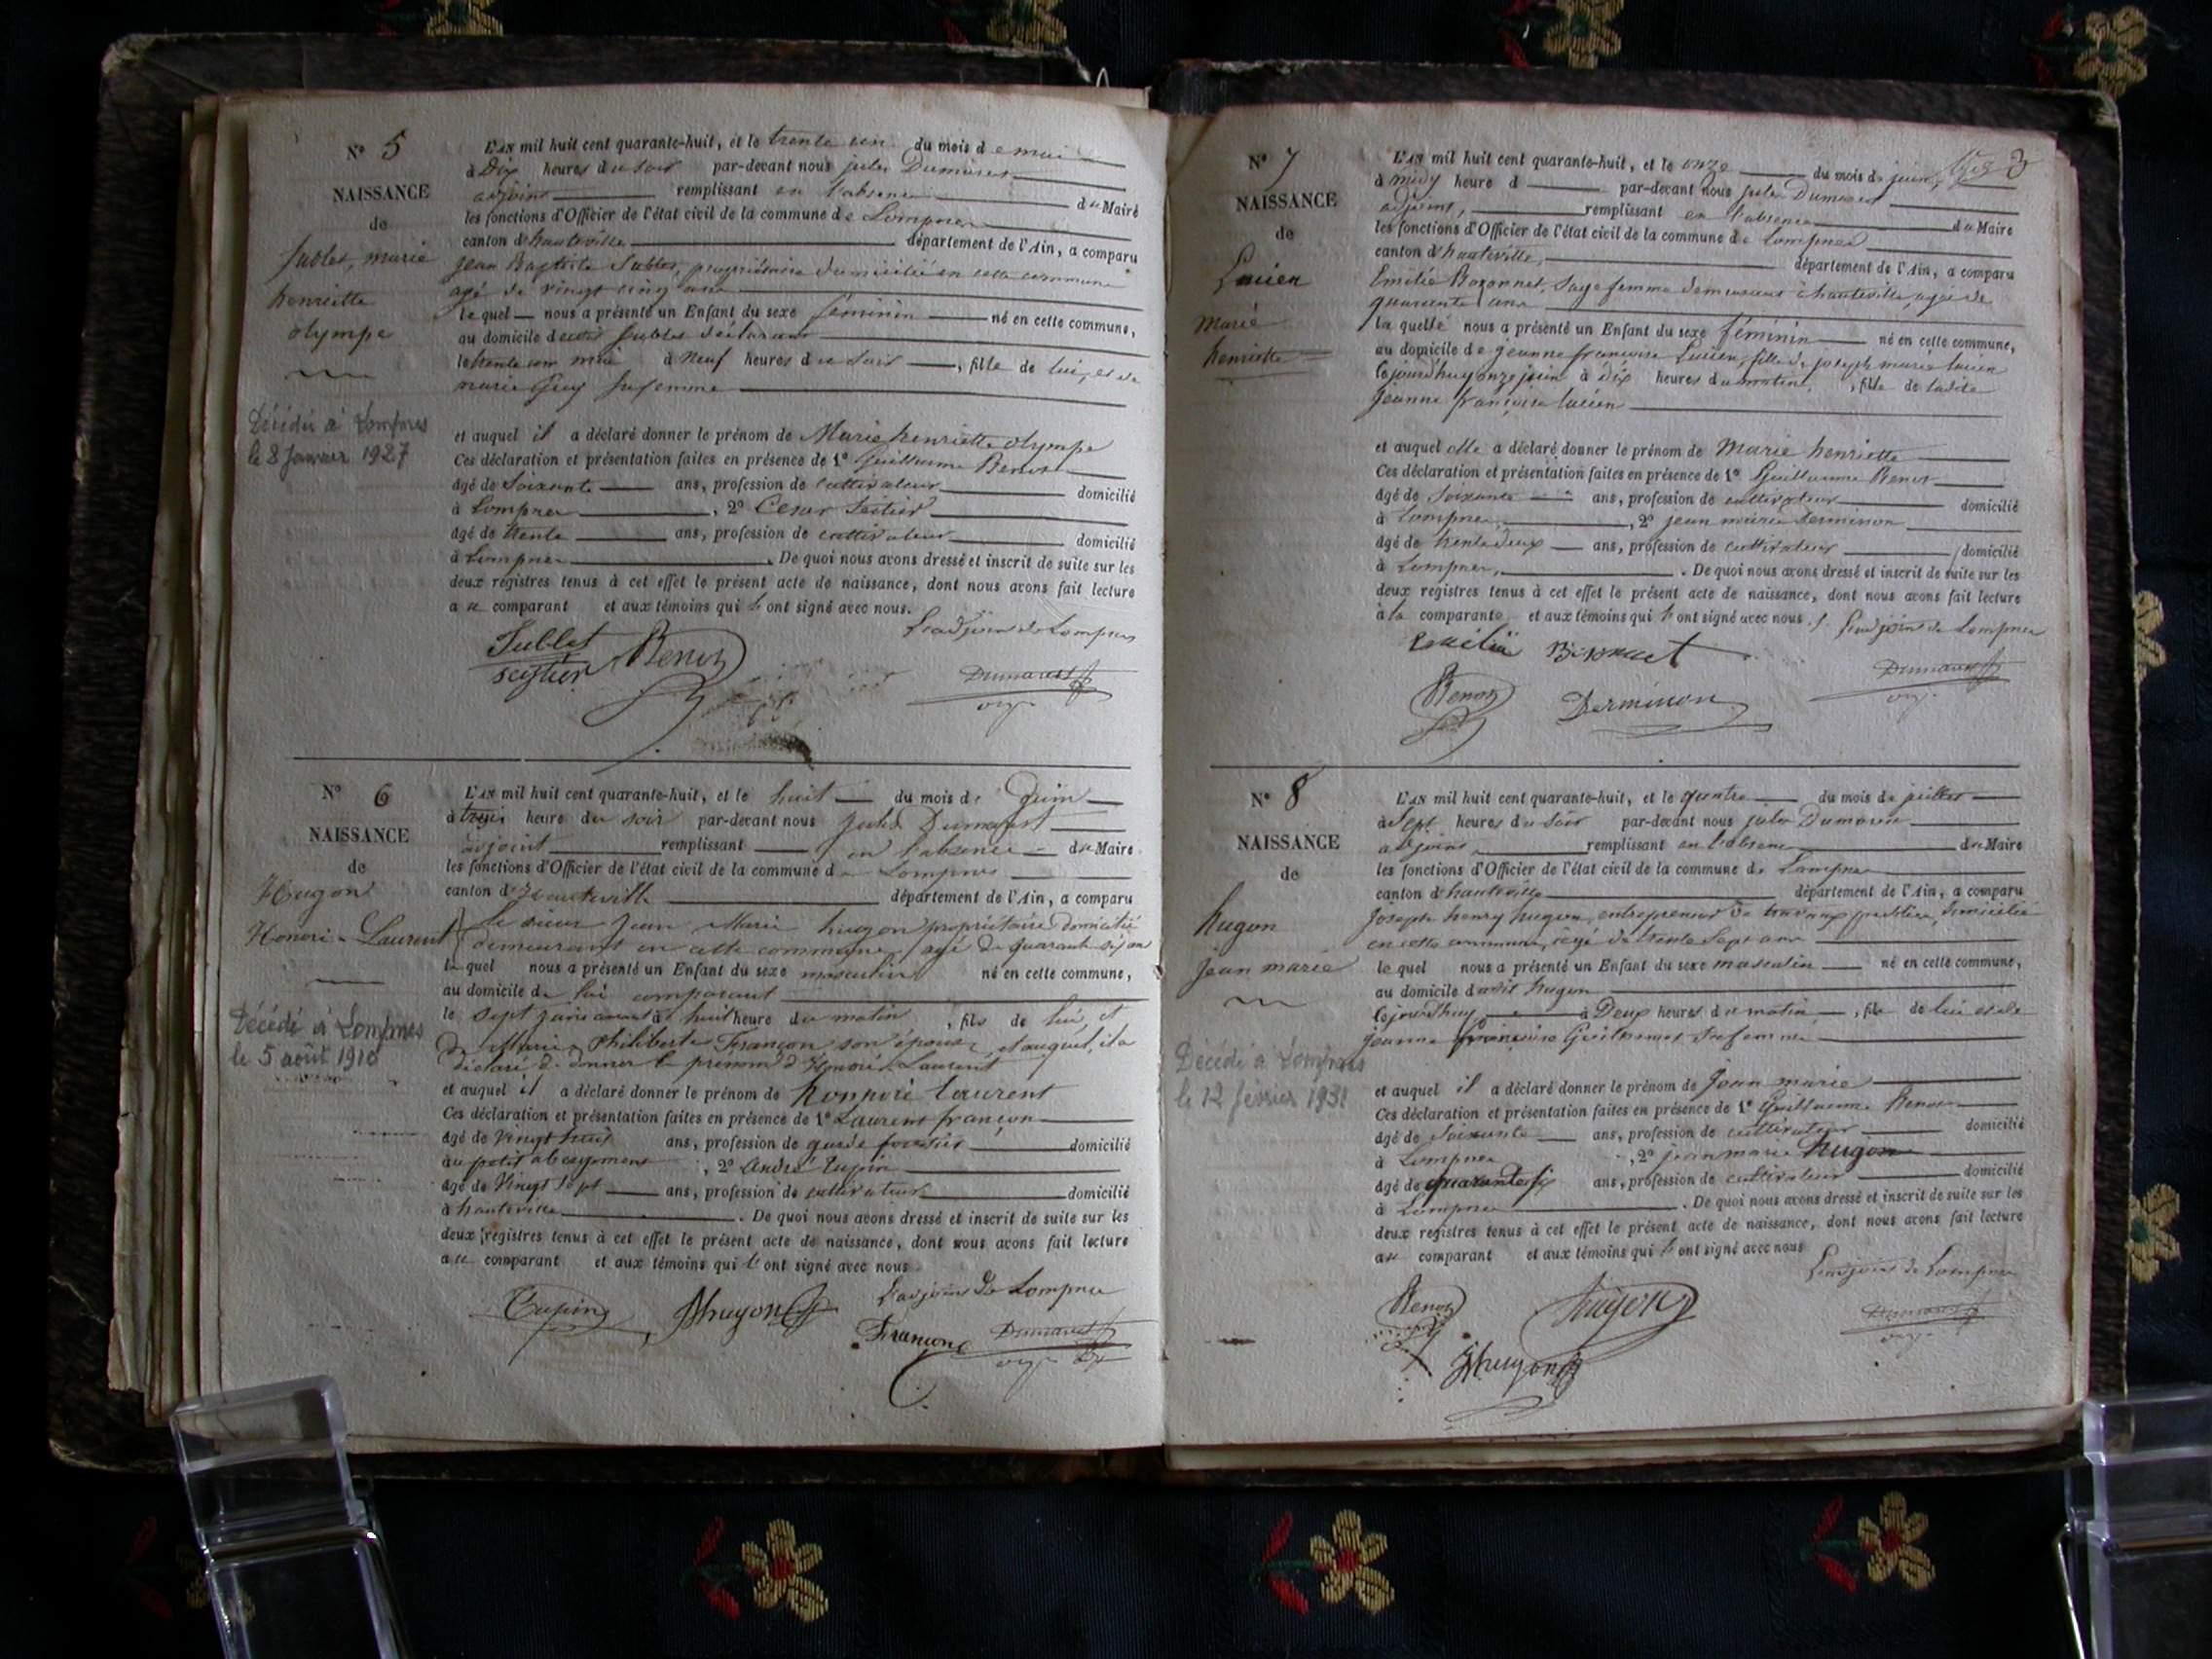 N° 5
NAISSANCE
de
Sublet, marie
henriette
olympe
Décédée à Lompnes
le 8 Janvier 1927
L'AN mil huit cent quarante-huit, et le trente un du mois de mai
à Dix heures du soir par-devant nous jules Dumarest
adjoint remplissant en l'absence du Maire
les fonctions d'Officier de l'état civil de la commune de Lompnes
canton d'hauteville département de l'Ain, a comparu
Jean Baptiste Sublet, propriétaire domicilié en cette commune
agé de vingt cinq ans
le quel nous a présenté un Enfant du sexe féminin né en cette commune,
au domicile dudit Sublet déclarant
le trente un mai à Neuf heures du soir, fille de lui, et de
marie Guy sa femme
et auquel il a déclaré donner le prénom de Marie henriette olympe
Ces déclaration et présentation faites en présence de 1° Guillaume Benoit
âgé de Soixante ans, profession de cultivateur domicilié
à Lompnes, 2° Cesar
âgé de trente ans, profession de cultivateur domicilié
à Lompnes. De quoi nous avons dressé et inscrit de suite sur les
deux registres tenus à cet effet le présent acte de naissance, dont nous avons fait lecture
au comparant et aux témoins qui l'ont signé avec nous.
L'adjoint de Lompnes
Sublet Benoit
Dumarest
N° 6
NAISSANCE
de
Hugon
Honoré Laurent
Décédé à Lompnes
le 5 août 1910
L'AN mil huit cent quarante-huit, et le huit du mois de Juin
à trois heure du soir par-devant nous Jules Dumarest
adjoint remplissant en l'absence du Maire
les fonctions d'Officier de l'état civil de la commune de Lompnes
canton d'Hauteville département de l'Ain, a comparu
le sieur Jean Marie hugon propriétaire domicilié
demeurant en cette commune, agé de quarante six ans
le quel nous a présenté un Enfant du sexe masculin né en cette commune,
au domicile de lui comparant
le sept juin courant à huit heure du matin, fils de lui, et
de Marie Philiberte Françon son épouse, et auquel, il a
déclaré de donner le prénom d'Honoré Laurent
et auquel il a déclaré donner le prénom de honnoré laurent
Ces déclaration et présentation faites en présence de 1° Laurent françon
âgé de Vingt huit ans, profession de garde forestier domicilié
au petit abergement, 2° André Tupin
âgé de Vingt sept ans, profession de cultivateur domicilié
à hauteville. De quoi nous avons dressé et inscrit de suite sur les
deux registres tenus à cet effet le présent acte de naissance, dont nous avons fait lecture
au comparant et aux témoins qui l'ont signé avec nous
L'adjoint de Lompnes
Tupin Jhugon
Françon Dumarest
N° 7
NAISSANCE
de
Lucien
Marie
henriette
3
L'AN mil huit cent quarante-huit, et le onze du mois de juin,
à midy heure d par-devant nous jules Dumarest
adjoint, remplissant en l'absence du Maire
les fonctions d'Officier de l'état civil de la commune de Lompnes
canton d'hauteville, département de l'Ain, a comparu
Emilie Bozonnet, Sage femme demeurant à hauteville, agée de
quarante ans
la quelle nous a présenté un Enfant du sexe féminin né en cette commune,
au domicile de jeanne françoise Lucien, fille de joseph marie lucien
cejourdhuy onze juin à Dix heures du matin, fille de ladite
jeanne françoise lucien
et auquel elle a déclaré donner le prénom de Marie henriette
Ces déclaration et présentation faites en présence de 1° Guillaume Benoit
âgé de Soixante ans, profession de cultivateur domicilié
à Lompnes, 2° jean marie Derminon
âgé de trente deux ans, profession de cultivateur domicilié
à Lompnes. De quoi nous avons dressé et inscrit de suite sur les
deux registres tenus à cet effet le présent acte de naissance, dont nous avons fait lecture
à la comparante et aux témoins qui l'ont signé avec nous.
L'adjoint de Lompnes
Benoit Derminon
Dumarest
N° 8
NAISSANCE
de
hugon
jean marie
Décédé à Lompnes
le 12 février 1931
L'AN mil huit cent quarante-huit, et le quatre du mois de juillet
à Sept heures du soir par-devant nous jules Dumarest
adjoint, remplissant en l'absence du Maire
les fonctions d'Officier de l'état civil de la commune de Lompnes
canton d'hauteville département de l'Ain, a comparu
joseph henry hugon, entrepreneur de travaux publics, domicilié
en cette commune, agé de trente Sept ans
le quel nous a présenté un Enfant du sexe masculin né en cette commune,
au domicile dudit hugon
cejourdhuy à Deux heures du matin, fils de lui et de
jeanne françoise sa femme
et auquel il a déclaré donner le prénom de Jean marie
Ces déclaration et présentation faites en présence de 1° Guillaume Benoit
âgé de Soixante ans, profession de cultivateur domicilié
à Lompnes, 2° jean marie hugon
âgé de quarante six ans, profession de cultivateur domicilié
à Lompnes. De quoi nous avons dressé et inscrit de suite sur les
deux registres tenus à cet effet le présent acte de naissance, dont nous avons fait lecture
au comparant et aux témoins qui l'ont signé avec nous
L'adjoint de Lompnes
Benoit hugon
Dumarest
Jhugon